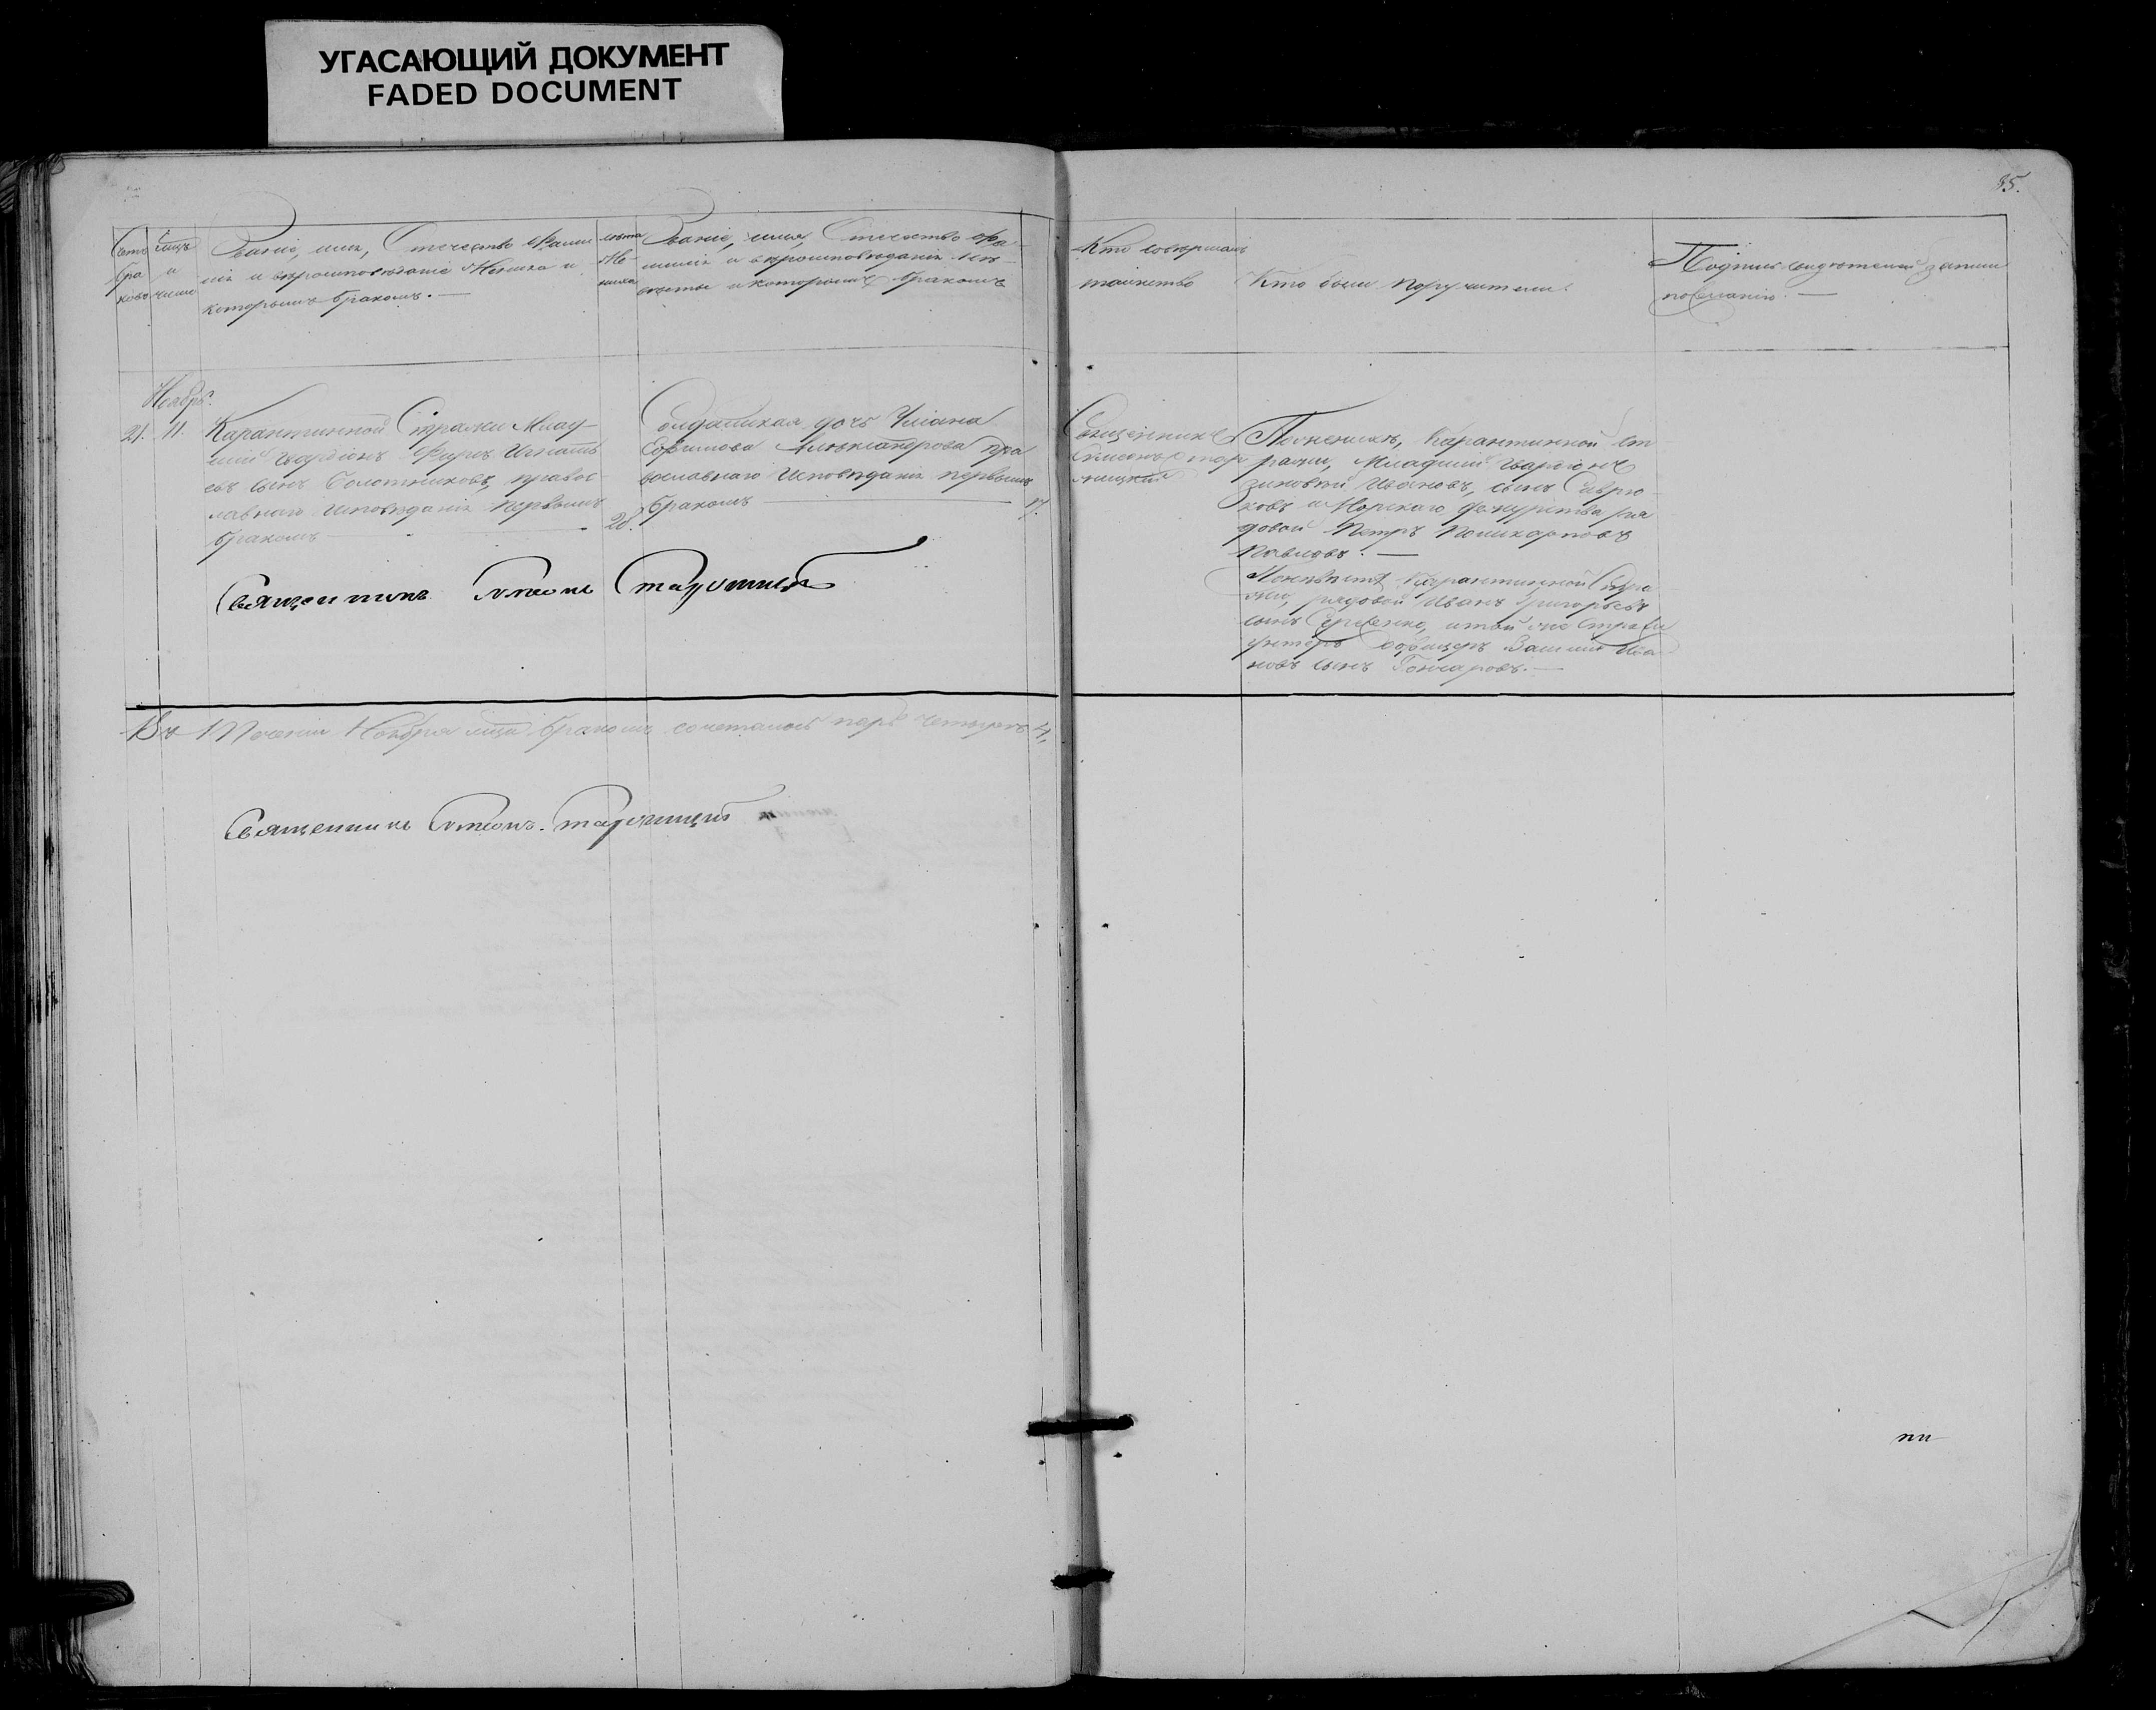 УГАСАЮЩИЙ ДОКУМЕНТ
FADED DOCUMENT
35.
Счетъ
бра
ковъ
мцъ
и
число
Званіе, имя, Отечество Фами
лія и вѣроисповѣданіе Жениха и
которымъ бракомъ. —
лѣта
Же-
ниха
Званіе, имя, Отечество фа-
милія и вѣроисповѣданія Не-
вѣсты и которымъ бракомъ
Кто совершалъ
таинство
Кто были поручители
Подпись свидѣтелей записи
по желанію. —
Ноябрь.
21. 11.
Карантинной Стражи Млад-
шій Гвардіонъ Игнать
евъ сынъ Болотниковъ, правос
лавнаго исповѣданія первымъ
бракомъ
28.
Солдатская дочь Уліана
Ефимова пра
вославнаго исповѣданія первымъ
бракомъ
17.
Священникъ
Симеонъ Стар
ницкій
По женихѣ, Карантинной ст
ражи, Младшій Гвардіонъ
Зиновій Ивановъ, сынъ Саврю
ковъ и Морскаго дежурства ря
довой Петръ Поликарповъ
Павловъ. —
По невѣстѣ Карантинной Стра
жи, рядовой Иванъ Григорьевъ
сынъ Сергіенко, и той же Стражи
унтеръ Офицеръ Василій Ива
новъ сынъ Гончаровъ. —
Священникъ Симеонъ Старницкій
Въ Теченіи Ноября мца бракомъ сочеталось паръ четыре 4.
Священникъ Симеонъ Старницкій